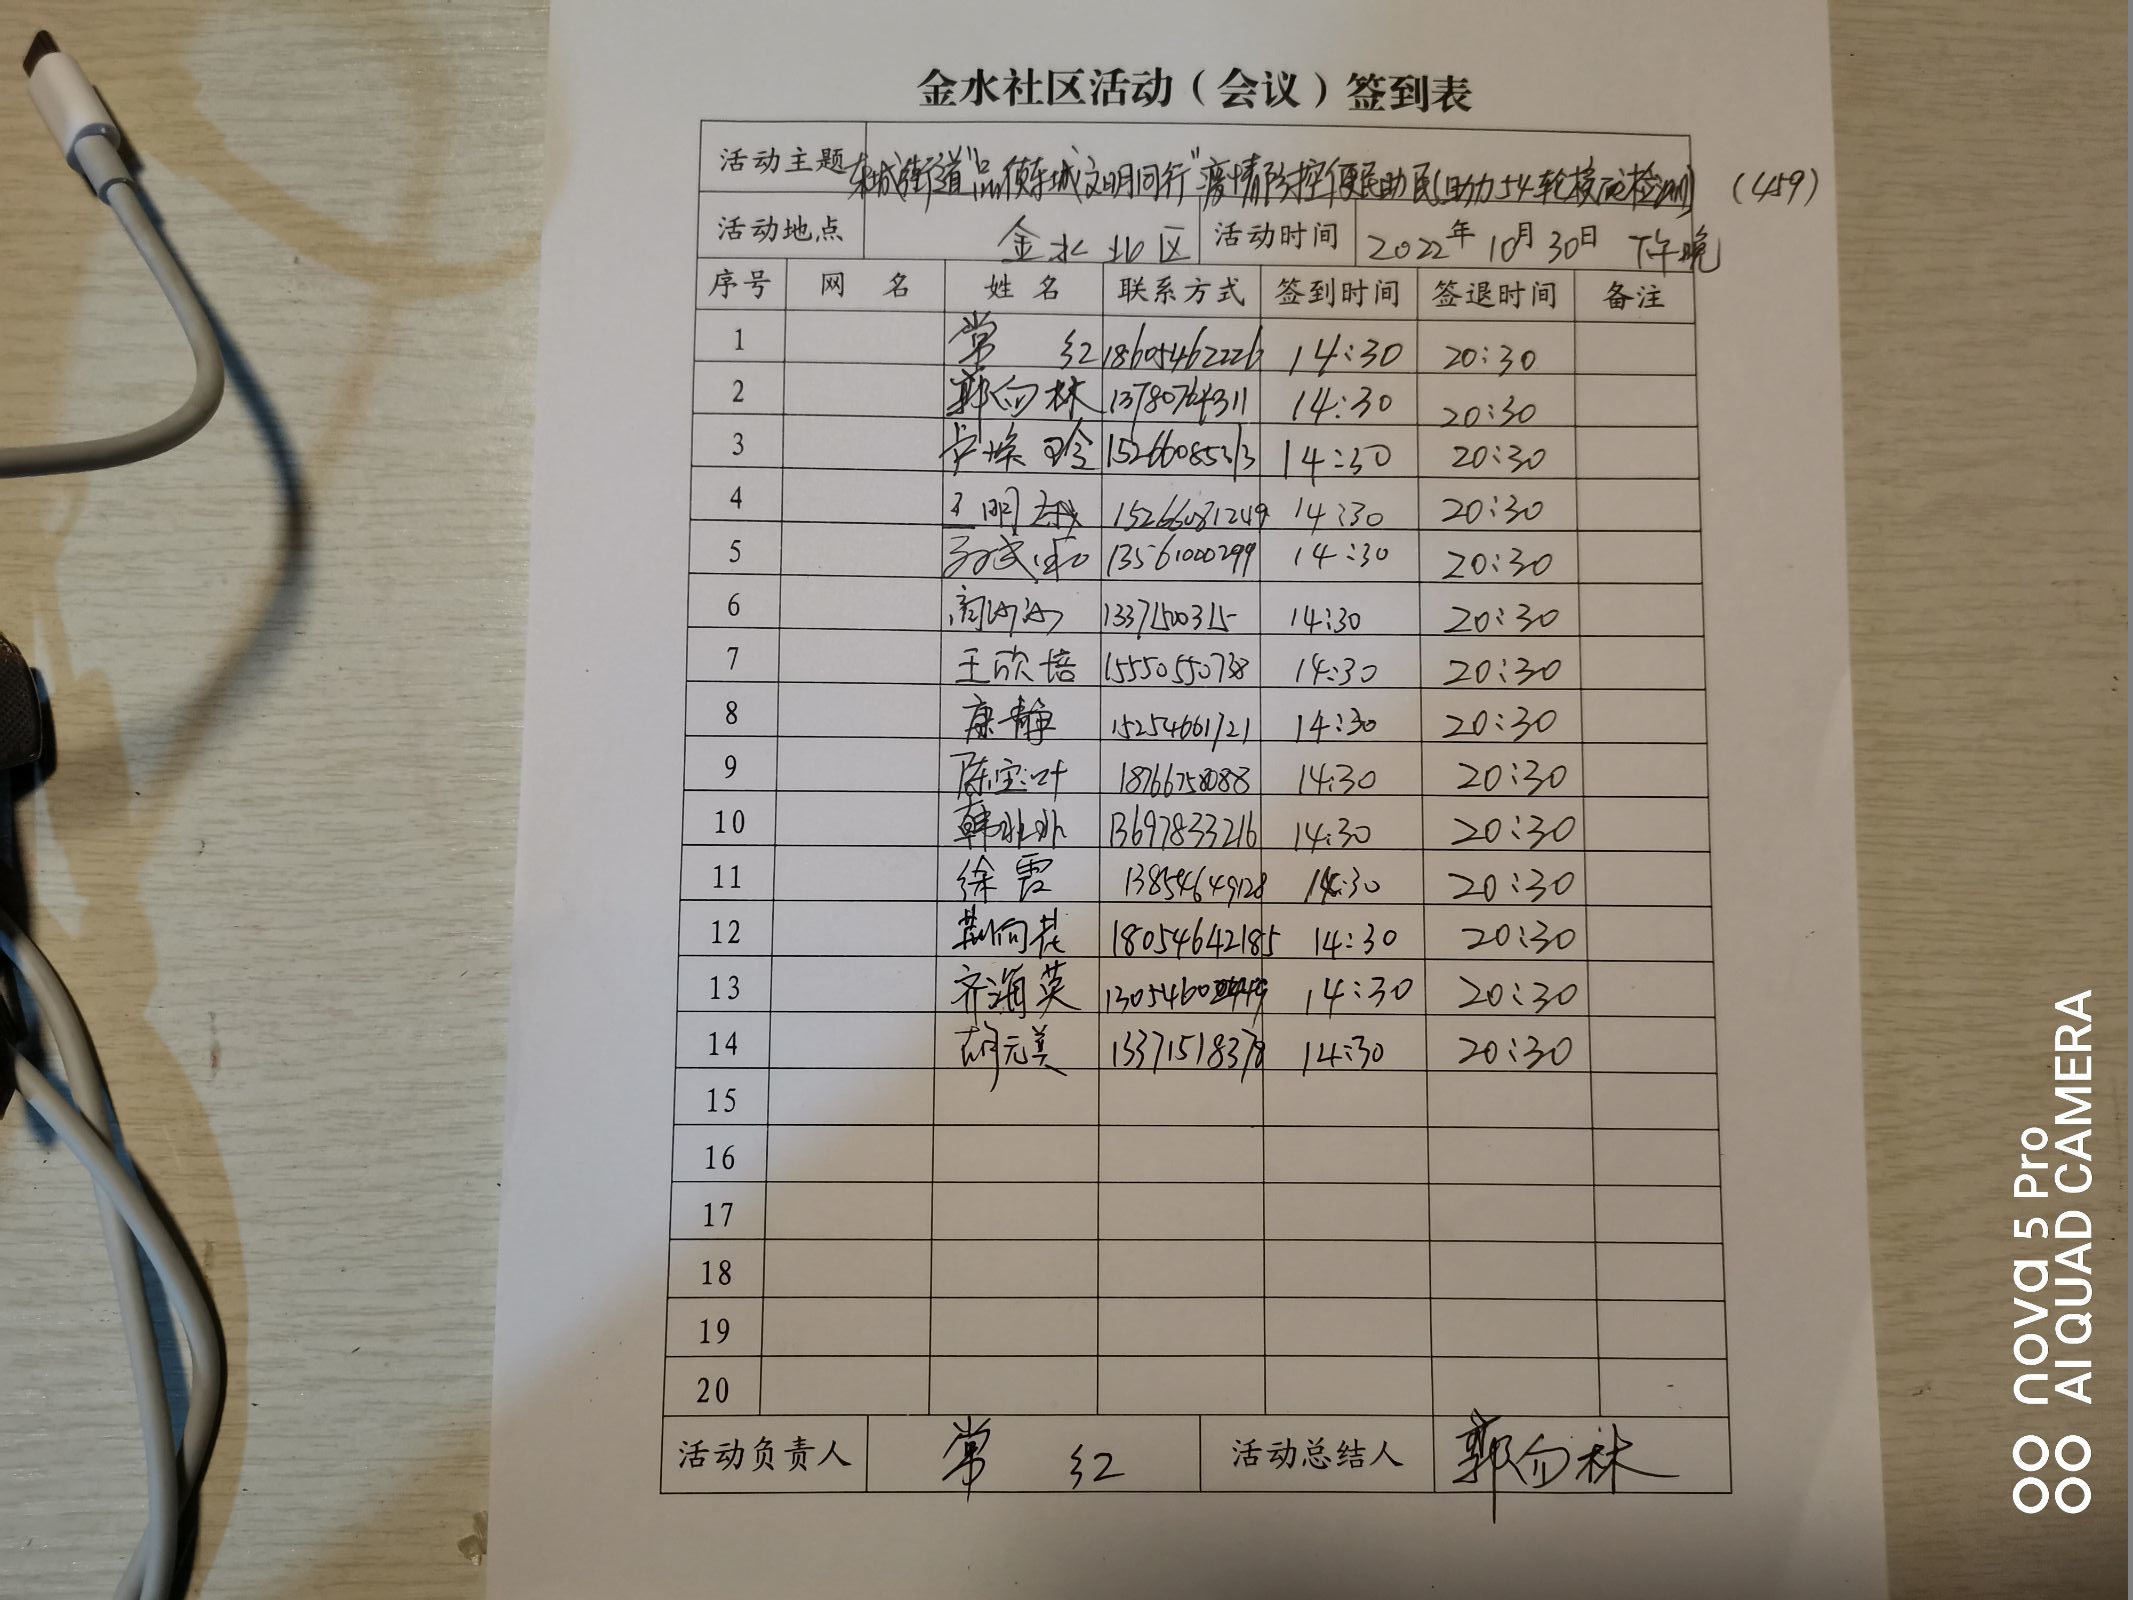 金水社区活动（会议）签到表
活动主题 东城街道"品质东城文明同行"疫情防控便民助民(助力54轮核酸检测) (459)
活动地点 金水北区 活动时间 2022年10月30日 下午晚
序号 网 名 姓 名 联系方式 签到时间 签退时间 备注
1 常 红 18605462226 14:30 20:30
2 郭向林 13780764311 14:30 20:30
3 15266085313 14:30 20:30
4 15266081249 14:30 20:30
5 13561000299 14:30 20:30
6 14:30 20:30
7 王欣培 15550550738 14:30 20:30
8 康静 15254661721 14:30 20:30
9 陈宝叶 18766758088 14:30 20:30
10 韩冰冰 13697833216 14:30 20:30
11 徐霞 13854649128 14:30 20:30
12 荆向花 18054642185 14:30 20:30
13 齐海英 14:30 20:30
14 胡元美 13371518378 14:30 20:30
15
16
17
18
19
20
活动负责人 常 红 活动总结人 郭向林
nova 5 Pro
AI QUAD CAMERA